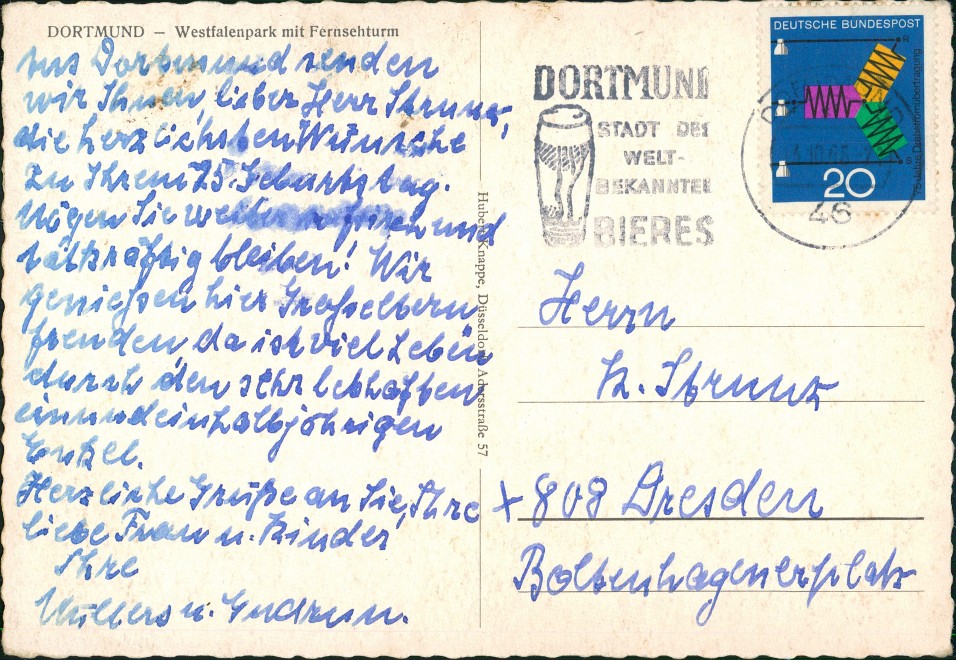 DORTMUND – Westfalenpark mit Fernsehturm
Aus Dortmund senden
wir Ihnen, lieber Herr Strunz,
die herzlichsten Wünsche
zu Ihrem 75. Geburtstag.
Mögen Sie weiter und
tatkräftig bleiben! Wir
genießen hier Großeltern
freuden, da ist viel Leben
durch den sehr lebhaften
einundeinhalbjährigen
Enkel.
Herzliche Grüße an Sie, Ihre
liebe Frau u. Kinder
Ihre
u. Gudrun.
Hubert Knappe, Düsseldorf, Adersstraße 57
DORTMUND
STADT DES
WELT-
BEKANNTEN
BIERES
DEUTSCHE BUNDESPOST
75 Jahre Drehstromübertragung
R
S
20
46
Herrn
K. Strunz
x 808 Dresden
Boltenhagenerplatz